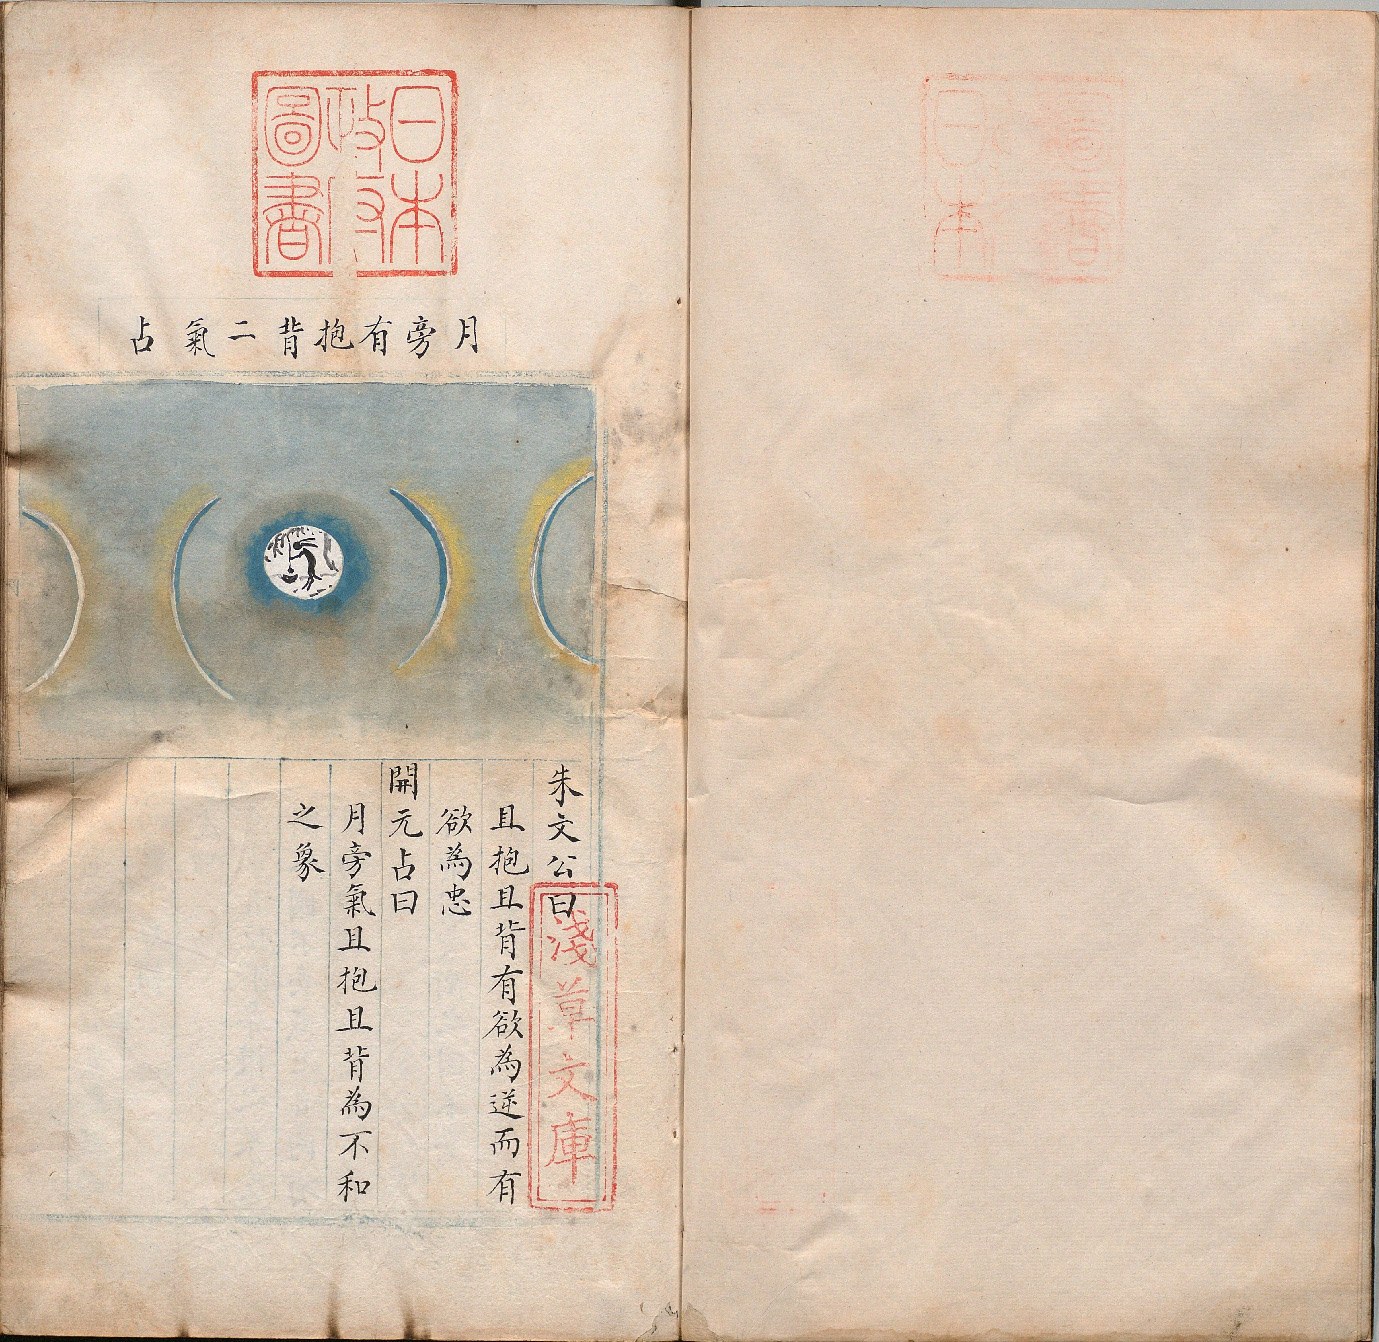 日本
政府
圖書
月旁有抱背二氣占
朱文公曰
且抱且背有欲為逆而有
欲為忠
開元占曰
月旁氣且抱且背為不和
之象
淺草文庫